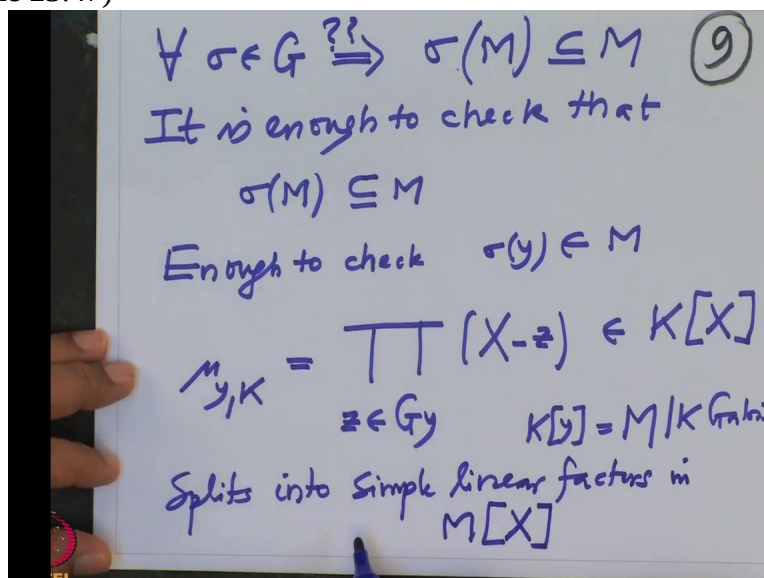 ∀ σ∈G ⟹?? σ(M) ⊆ M ⑨
It is enough to check that
σ(M) ⊆ M
Enough to check σ(y) ∈ M
μ_{y,K} = ∏_{z∈Gy} (X-z) ∈ K[X]
K[y] = M|K Galoi
Splits into simple linear factors in
M[X]